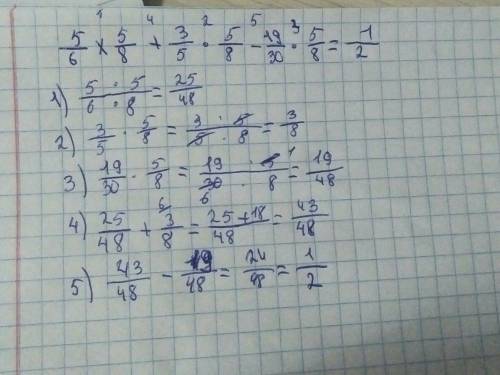 5/6 ×¹ 5/8 +⁴ 3/5 ·² 5/8 −⁵ 19/30 ·³ 5/8 = 1/2
1) 5/6 · 5/8 = 25/48
2) 3/5 · 5/8 = 3 · 5/5 · 8 = 3/8
3) 19/30 · 5/8 = 19 · 5 1/30 6 · 8 = 19/48
4) 25/48 + 3/8 6 = 25+18/48 = 43/48
5) 43/48 − 19/48 = 24/48 = 1/2